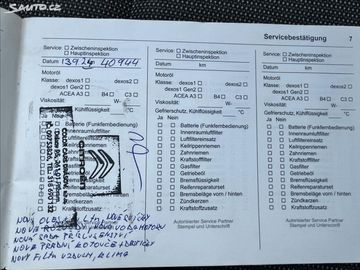 Sauto.cz
Servicebestätigung 7
Service: Zwischeninspektion
Hauptinspektion
Datum 13.9.24 40944
Motoröl
Klasse: dexos1 dexos2
dexos1 Gen2
ACEA A3 B4 C3
Viskosität: W-
Kühlflüssigkeit:
Ja Nein
Batterie (Funkfernbedienung)
Innenraumfilter
Luftfiltereinsatz
Keilrippenriemen
Zahnriemen
Kraftstofffilter
Gasfilter
Getriebeöl
Bremsflüssigkeit
Reifenreparaturset
Bremsbeläge vorn / hinten
Zündkerzen
Kraftstoffzusatz
CITROËN
NOVÝ OLEJ + FILTR, NOVÉ SVÍČKY
NOVÉ ROZVODY, NOVÁ VODA MOTORU
NOVÉ PŘEDNÍ KOTOUČE + DESTIČKY
NOVÝ FILTR VZDUCH, KLIMA
Service: Zwischeninspektion
Hauptinspektion
Datum km
Motoröl
Klasse: dexos1 dexos2
dexos1 Gen2
ACEA A3 B4 C3
Viskosität: W-
Gefrierschutz, Kühlflüssigkeit: °C
Ja Nein
Batterie (Funkfernbedienung)
Innenraumfilter
Luftfiltereinsatz
Keilrippenriemen
Zahnriemen
Kraftstofffilter
Gasfilter
Getriebeöl
Bremsflüssigkeit
Reifenreparaturset
Bremsbeläge vorn / hinten
Zündkerzen
Kraftstoffzusatz
Autorisierter Service Partner
Stempel und Unterschrift
Service: Zwischeninspektion
Hauptinspektion
Datum km
Motoröl
Klasse: dexos1 dexos2
dexos1 Gen2
ACEA A3 B4 C3
Viskosität: W-
Gefrierschutz, Kühlflüssigkeit: °C
Ja Nein
Batterie (Funkfernbedienung)
Innenraumfilter
Luftfiltereinsatz
Keilrippenriemen
Zahnriemen
Kraftstofffilter
Gasfilter
Getriebeöl
Bremsflüssigkeit
Reifenreparaturset
Bremsbeläge vorn / hinten
Zündkerzen
Kraftstoffzusatz
Autorisierter Service Partner
Stempel und Unterschrift